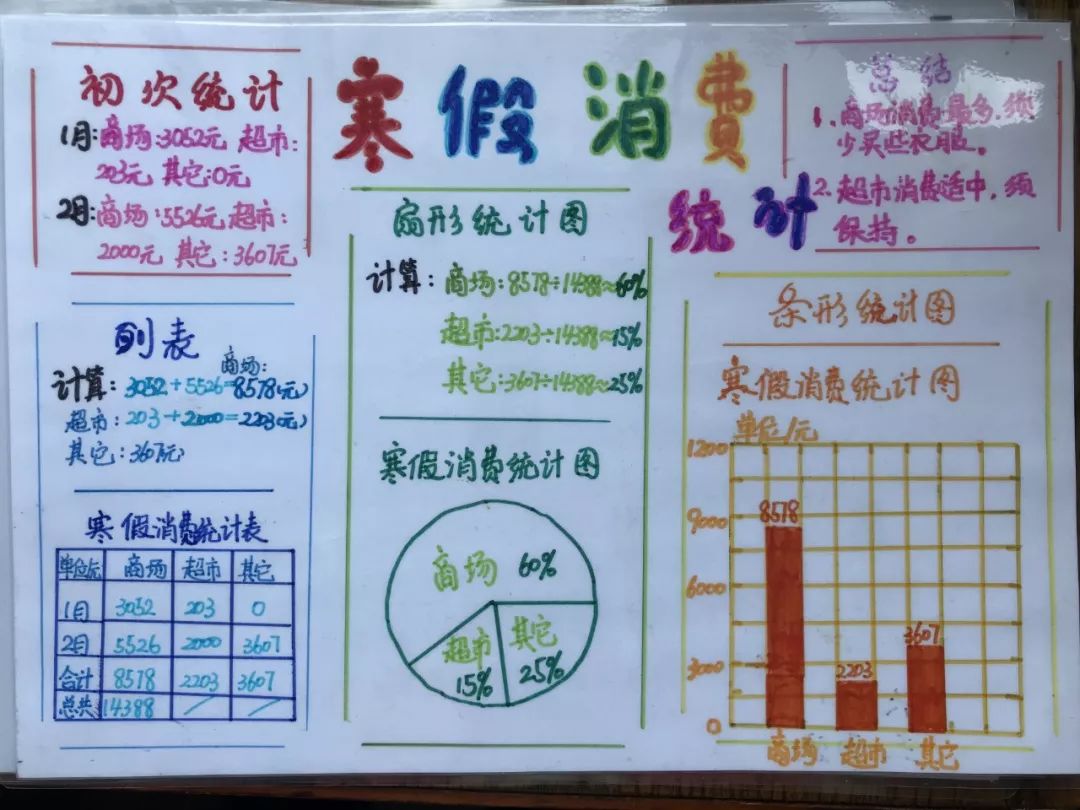 寒假消费
统计
初次统计
1月:商场:3052元 超市:
203元 其它:0元
2月:商场:5526元 超市:
2000元 其它:3607元
列表
商场:
计算:3052+5526=8578(元)
超市:203+2000=2203(元)
其它:3607(元)
寒假消费统计表
单位/元 商场 超市 其它
1月 3052 203 0
2月 5526 2000 3607
合计 8578 2203 3607
总共 14388 / /
扇形统计图
计算:商场:8578÷14388≈60%
超市:2203÷14388≈15%
其它:3607÷14388≈25%
寒假消费统计图
商场 60%
超市
15%
其它
25%
总结
1.商场消费最多,须
少买些衣服。
2.超市消费适中,须
保持。
条形统计图
寒假消费统计图
单位/元
1200
9000
6000
3000
0
8578
2203
3607
商场 超市 其它